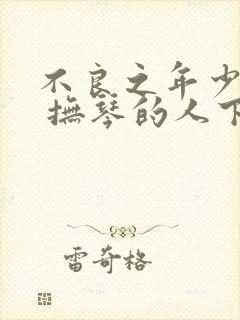 不良之年少
撫琴的人下
雷奇格